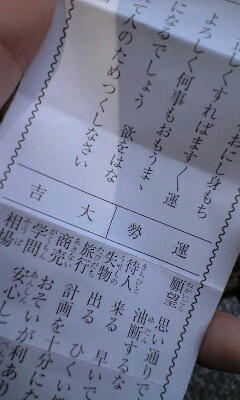 おに身もち
しくすればます〱運
よろしく何事もおもうまゝ
になるでしょう 欲をはな
て人のためつくしなさい
運勢
大吉
願望 思い通りで
油断するな
待人 来る 早いで
失物 出る ひくい
旅行 計画を十分にた
商売 おそいが利あり
学問 安心し
相場